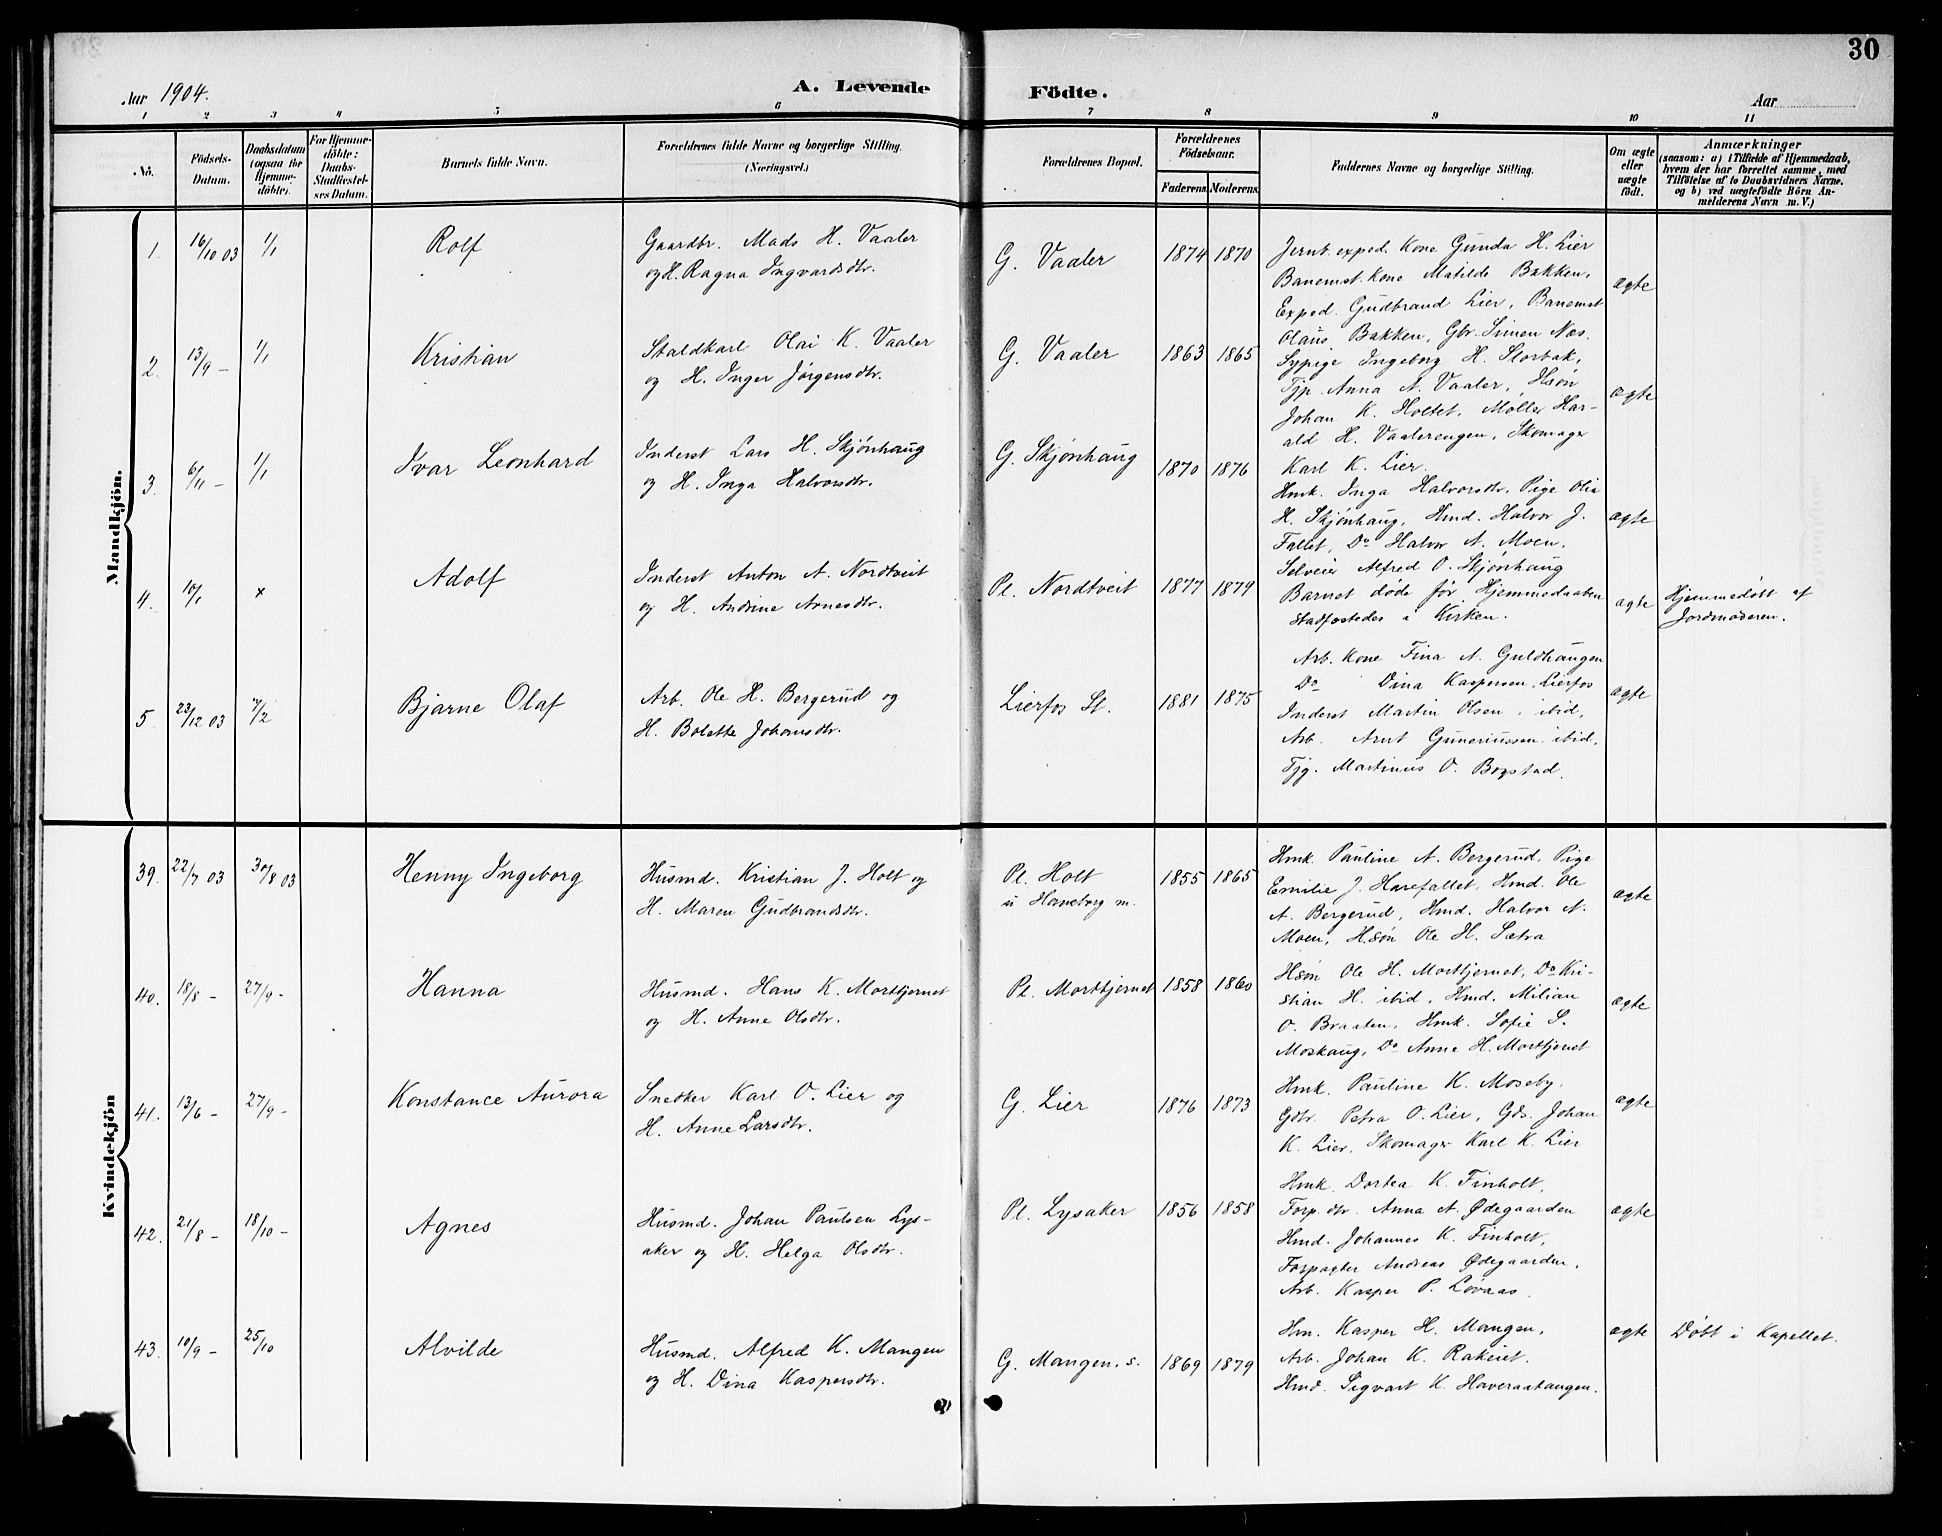 30
Aar 1904.
A. Levende Födte.
Aar
1 2 3 4 5 6 7 8 9 10 11
No.
Födsels-
Datum.
Daabsdatum
(ogsaa for
Hjemme-
döbte).
For Hjemme-
döbte:
Daabs-
Stadfæstel-
ses Datum.
Barnets fulde Navn.
Forældrenes fulde Navne og borgerlige Stilling.
(Næringsvei.)
Forældrenes Bopæl.
Forældrenes
Födselsaar.
Faderens. Moderens.
Faddernes Navne og borgerlige Stilling.
Om ægte
eller
uægte
födt.
Anmærkninger
(saasom: a) i Tilfælde af Hjemmedaab,
hvem der har forrettet samme, med
Tilföielse af to Daabsvidners Navne,
og b) ved uægtefödte Börn An-
melderens Navn m. V.)
Mandkjön.
1. 16/10 03 1/1 Rolf
Gaardbr. Mads H. Vaaler
og H. Ragna Ingvardsdtr.
G. Vaaler 1874 1870
Jernb.exped. Kone Gunda H. Lier
Banemst. Kone Matilde Bakken,
Exped. Gudbrand Lier, Banemst
Olaus Bakken, Gbr. Simen Næs.
ægte
2. 13/9 – 1/1 Kristian
Staldkarl Olai K. Vaaler
og H. Inger Jørgensdtr.
G. Vaaler 1863 1865
Sypige Ingeborg H. Storbak,
Tjp. Anna A. Vaaler, Hsøn
Johan K. Holtet, Møller Har-
ald H. Vaalerengen, Skomager
Karl K. Lier.
ægte
3. 6/11 – 1/1 Ivar Leonhard
Inderst Lars H. Skjønhaug
og H. Inga Halvorsdtr.
G. Skjønhaug 1870 1876
Hmk. Inga Halvorsdtr, Pige Olia
H. Skjønhaug, Hmd. Halvor J.
Fallet, Do Halvor A. Moen,
Selveier Alfred O. Skjønhaug
ægte
4. 10/1 x Adolf
Inderst Anton A. Nordtveit
og H. Andrine Arnesdtr.
Pl. Nordtveit 1877 1879
Barnet døde før Hjemmedaaben
stadfæstedes i Kirken.
ægte
Hjemmedøbt af
Jordmoderen.
5. 23/12 03 7/2 Bjarne Olaf
Arb. Ole H. Bergerud og
H. Bolette Johansdtr.
Lierfos St. 1881 1875
Arb. Kone Fina A. Guldhaugen
Do Dina Kaspersen, Lierfos
Inderst Martin Olsen, ibid,
Arb. Arnt Guneriussen ibid,
Tjg. Martinus O. Bogstad.
ægte
Kvindekjön
39. 22/7 03 30/8 03 Henny Ingeborg
Husmd. Kristian J. Holt og
H. Maren Gudbrandsdtr.
Pl. Holt
u Haneborg m.
1855 1865
Hmk. Pauline A. Bergerud, Pige
Emilie J. Harefallet, Hmd. Ole
A. Bergerud, Hmd. Halvor A.
Moen, Hsøn Ole H. Sætra
ægte
40. 18/8 – 27/9 – Hanna
Husmd. Hans K. Morttjernet
og H. Anne Olsdtr.
Pl. Morttjernet 1858 1860
Hsøn Ole H. Morttjernet, Do Kri-
stian H. ibid, Hmd. Milian
O. Braaten, Hmk. Sofie S.
Moskaug, Do Anne H. Morttjernet
ægte
41. 13/6 – 27/9 – Konstance Aurora
Snedker Karl O. Lier og
H. Anne Larsdtr.
G. Lier 1876 1873
Hmk. Pauline K. Moseby,
Gdtr. Petra O. Lier, Gds. Johan
K. Lier, Skomager Karl K. Lier
ægte
42. 21/8 – 18/10 – Agnes
Husmd. Johan Paulsen Lys-
aker og H. Helga Olsdtr.
Pl. Lysaker 1856 1858
Hmk. Dortea K. Finholt,
Forp.dtr. Anna A. Ødegaarden
Hmd. Johannes K. Finholt,
Forpagter Andreas Ødegaarden,
Arb. Kasper P. Løvaas.
ægte
43. 10/9 – 25/10 Alvilde
Husmd. Alfred K. Mangen
og H. Dina Kaspersdtr.
G. Mangen, s. 1869 1879
Hm. Kasper H. Mangen,
Arb. Johan K. Rakeiet.
Hmd. Sigvart K. Haveraatangen.
ægte
Døbt i Kapellet.